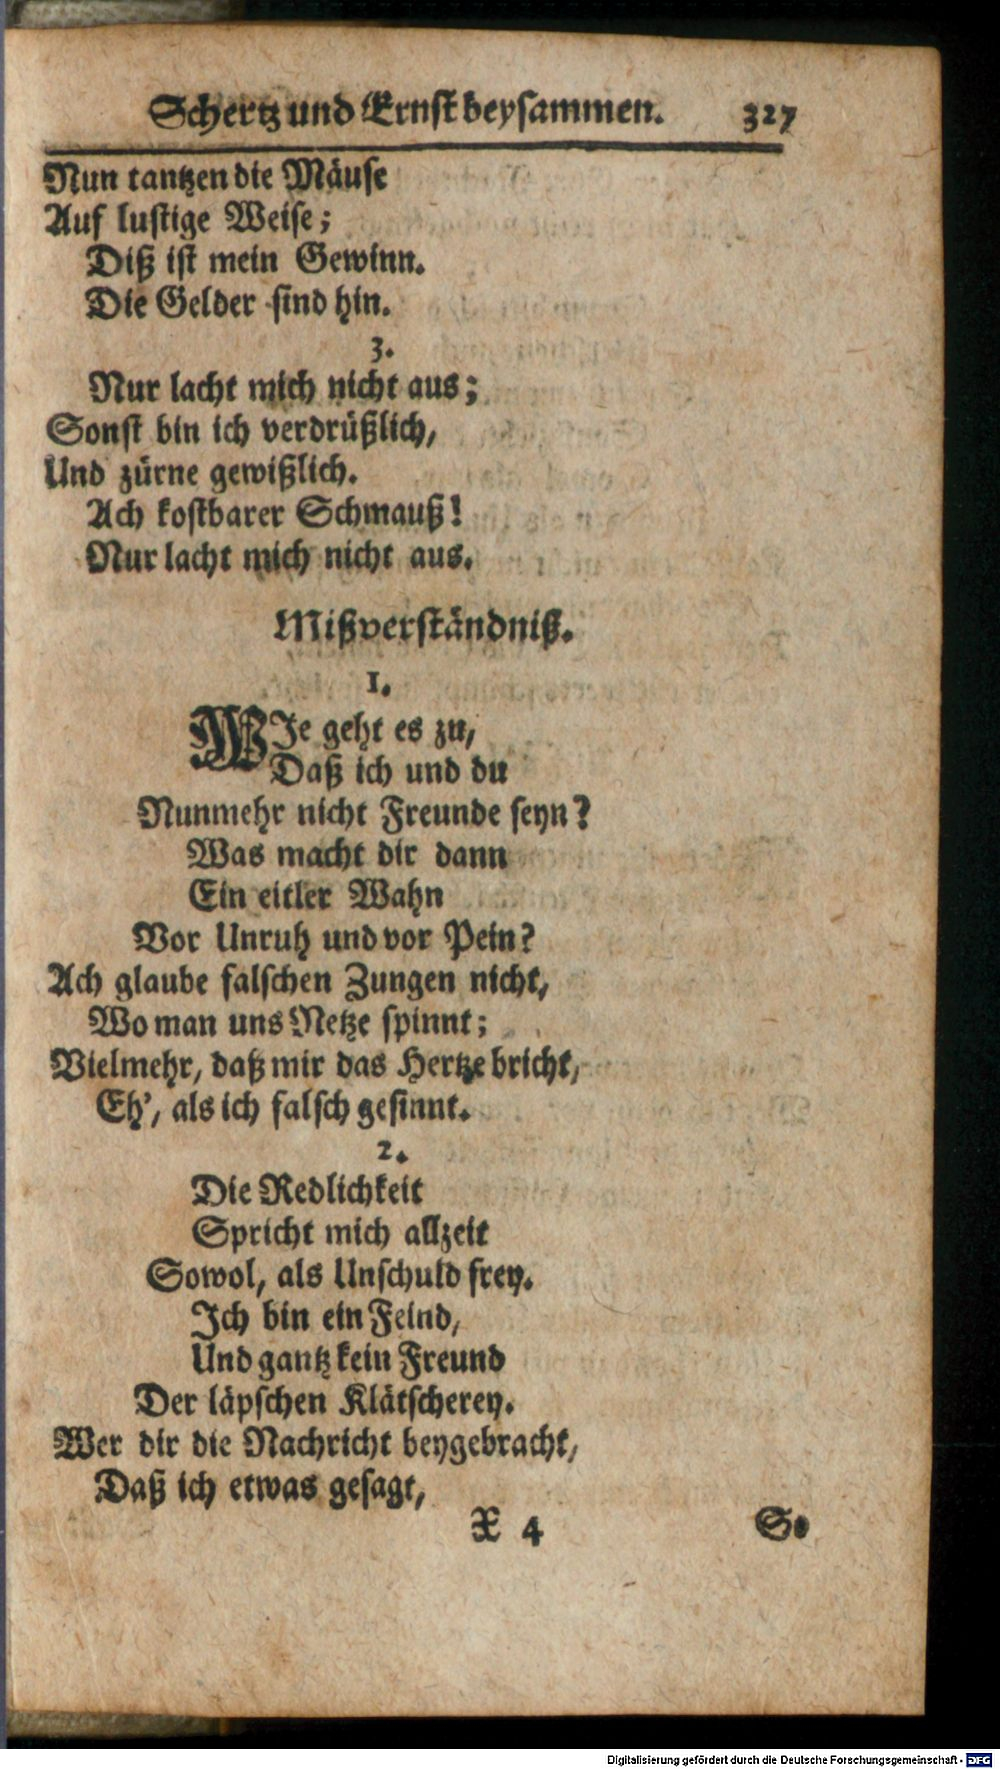 Schertz und Ernst beysammen. 327
Nun tantzen die Mäuse
Auf lustige Weise;
Diß ist mein Gewinn.
Die Gelder sind hin.
3.
Nur lacht mich nicht aus;
Sonst bin ich verdrüßlich,
Und zürne gewißlich.
Ach kostbarer Schmauß!
Nur lacht mich nicht aus.
Mißverständniß.
1.
WJe geht es zu,
Daß ich und du
Nunmehr nicht Freunde seyn?
Was macht dir dann
Ein eitler Wahn
Vor Unruh und vor Pein?
Ach glaube falschen Zungen nicht,
Wo man uns Netze spinnt;
Vielmehr, daß mir das Hertze bricht,
Eh', als ich falsch gesinnt.
2.
Die Redlichkeit
Spricht mich allzeit
Sowol, als Unschuld frey.
Jch bin ein Feind,
Und gantz kein Freund
Der läpschen Klätscherey.
Wer dir die Nachricht beygebracht,
Daß ich etwas gesagt,
X 4 So
Digitalisierung gefördert durch die Deutsche Forschungsgemeinschaft - DFG